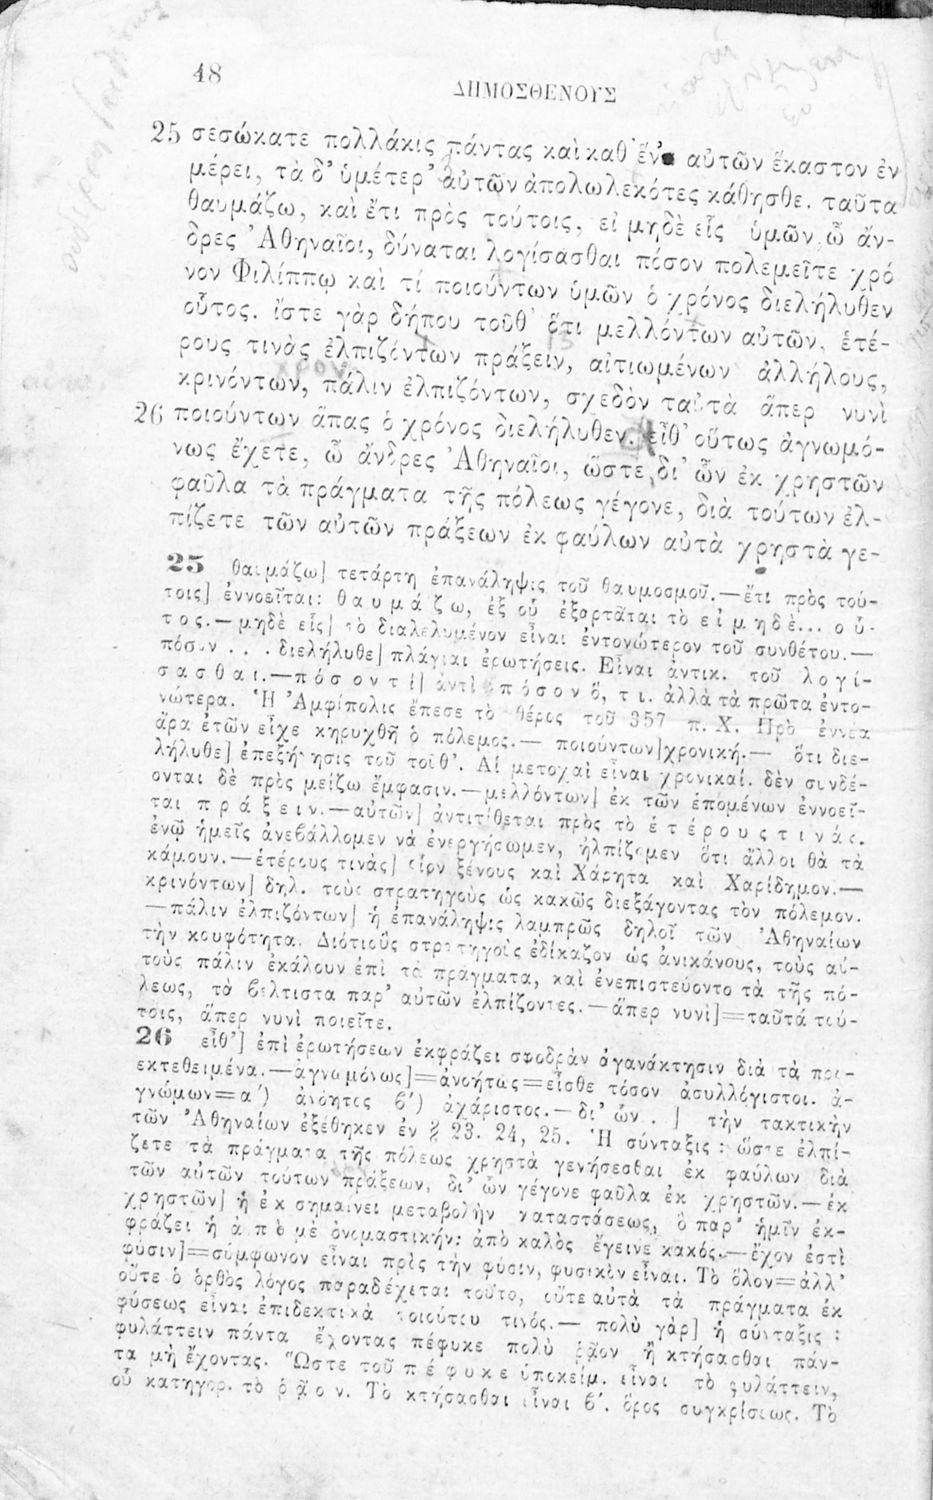 48
ΔΗΜΟΣΘΕΝΟΥΣ
25 σεσώκατε πολλάκις πάντας καὶ καθ' ἕν' αὐτῶν ἕκαστον ἐν
μέρει, τὰ δ' ὑμέτερ' αὐτῶν ἀπολωλεκότες κάθησθε. ταῦτα
θαυμάζω, καὶ ἔτι πρὸς τούτοις, εἰ μηδὲ εἷς ὑμῶν, ὦ ἄν-
δρες Ἀθηναῖοι, δύναται λογίσασθαι πόσον πολεμεῖτε χρό
νον Φιλίππῳ καὶ τί ποιούντων ὑμῶν ὁ χρόνος διελήλυθεν
οὗτος. ἴστε γὰρ δήπου τοῦθ' ὅτι μελλόντων αὐτῶν, ἑτέ-
ρους τινὰς ἐλπιζόντων πράξειν, αἰτιωμένων ἀλλήλους,
κρινόντων, πάλιν ἐλπιζόντων, σχεδὸν ταὐτὰ ἅπερ νυνὶ
26 ποιούντων ἅπας ὁ χρόνος διελήλυθεν. εἶθ' οὕτως ἀγνωμό-
νως ἔχετε, ὦ ἄνδρες Ἀθηναῖοι, ὥστε, δι' ὧν ἐκ χρηστῶν
φαῦλα τὰ πράγματα τῆς πόλεως γέγονε, διὰ τούτων ἐλ-
πίζετε τῶν αὐτῶν πράξεων ἐκ φαύλων αὐτὰ χρηστὰ γε-
25 θαυμάζω] τετάρτη ἐπανάληψις τοῦ θαυμοσμοῦ.—ἔτι πρὸς τού-
τοις] ἐννοεῖται: θαυμάζω, ἐξ οὗ ἐξαρτᾶται τὸ εἰ μηδὲ... οὗ-
τος.—μηδὲ εἷς] τὸ διαλελυμένον εἶναι ἐντονώτερον τοῦ συνθέτου.—
πόσον . . . διελήλυθε] πλάγιαι ἐρωτήσεις. Εἶναι ἀντικ. τοῦ λογί-
σασθαι.—πόσον τί] ἀντὶ ὁπόσον ὅ, τι. ἀλλὰ τὰ πρῶτα ἐντο-
νώτερα. Ἡ Ἀμφίπολις ἔπεσε τὸ θέρος τοῦ 357 π. Χ. Πρὸ ἐννέα
ἄρα ἐτῶν εἶχε κηρυχθῆ ὁ πόλεμος.— ποιούντων] χρονική.— ὅτι διε-
λήλυθε] ἐπεξήγησις τοῦ τοῦθ'. Αἱ μετοχαὶ εἶναι χρονικαί. δὲν συνδέ-
ονται δὲ πρὸς μείζω ἔμφασιν.—μελλόντων] ἐκ τῶν ἑπομένων ἐννοεῖ-
ται πράξειν.—αὐτῶν] ἀντιτίθεται πρὸς τὸ ἑτέρους τινάς.
ἐνῷ ἡμεῖς ἀνεβάλλομεν νὰ ἐνεργήσωμεν, ἠλπίζομεν ὅτι ἄλλοι θὰ τὰ
κάμουν.—ἑτέρους τινὰς] ξένους καὶ Χάρητα καὶ Χαρίδημον.—
κρινόντων] δηλ. τοὺς στρατηγοὺς ὡς κακῶς διεξάγοντας τὸν πόλεμον.
—πάλιν ἐλπιζόντων] ἡ ἐπανάληψις λαμπρῶς δηλοῖ τῶν Ἀθηναίων
τὴν κουφότητα. Διότι οὓς στρατηγοὺς ἐδίκαζον ὡς ἀνικάνους, τοὺς αὐ-
τοὺς πάλιν ἐκάλουν ἐπὶ τὰ πράγματα, καὶ ἐνεπιστεύοντο τὰ τῆς πό-
λεως, τὰ βέλτιστα παρ' αὐτῶν ἐλπίζοντες.—ἅπερ νυνὶ]=ταῦτά τού-
τοις, ἅπερ νυνὶ ποιεῖτε.
26 εἶθ'] ἐπὶ ἐρωτήσεων ἐκφράζει σφοδρὰν ἀγανάκτησιν διὰ τὰ προ-
εκτεθειμένα.—ἀγνωμόνως]=ἀνοήτως=εἶσθε τόσον ἀσυλλόγιστοι. ἀ-
γνώμων=α') ἀνόητος β') ἀχάριστος.—δι' ὧν . ] τὴν τακτικὴν
τῶν Ἀθηναίων ἐξέθηκεν ἐν § 23. 24, 25. Ἡ σύνταξις: ὥστε ἐλπί-
ζετε τὰ πράγματα τῆς πόλεως χρηστὰ γενήσεσθαι ἐκ φαύλων διὰ
τῶν αὐτῶν τούτων πράξεων, δι' ὧν γέγονε φαῦλα ἐκ χρηστῶν.—ἐκ
χρηστῶν] ἡ ἐκ σημαίνει μεταβολὴν καταστάσεως, ὃ παρ' ἡμῖν ἐκ-
φράζει ἡ ἀπὸ μὲ ὀνομαστικήν: ἀπὸ καλὸς ἔγεινε κακός.—ἔχον ἐστὶ
φύσιν]=σύμφωνον εἶναι πρὸς τὴν φύσιν, φυσικὸν εἶναι. Τὸ ὅλον=ἀλλ'
οὔτε ὁ ὀρθὸς λόγος παραδέχεται τοῦτο, οὔτε αὐτὰ τὰ πράγματα ἐκ
φύσεως εἶναι ἐπιδεκτικὰ τοιούτου τινός.— πολὺ γὰρ] ἡ σύνταξις:
φυλάττειν πάντα ἔχοντας πέφυκε πολὺ ῥᾷον ἢ κτήσασθαι πάν-
τα μὴ ἔχοντας. Ὥστε τοῦ πέφυκε ὑποκείμ. εἶναι τὸ φυλάττειν,
οὗ κατηγορ. τὸ ῥᾷον. Τὸ κτήσασθαι εἶναι β'. ὅρος συγκρίσεως. Τὸ